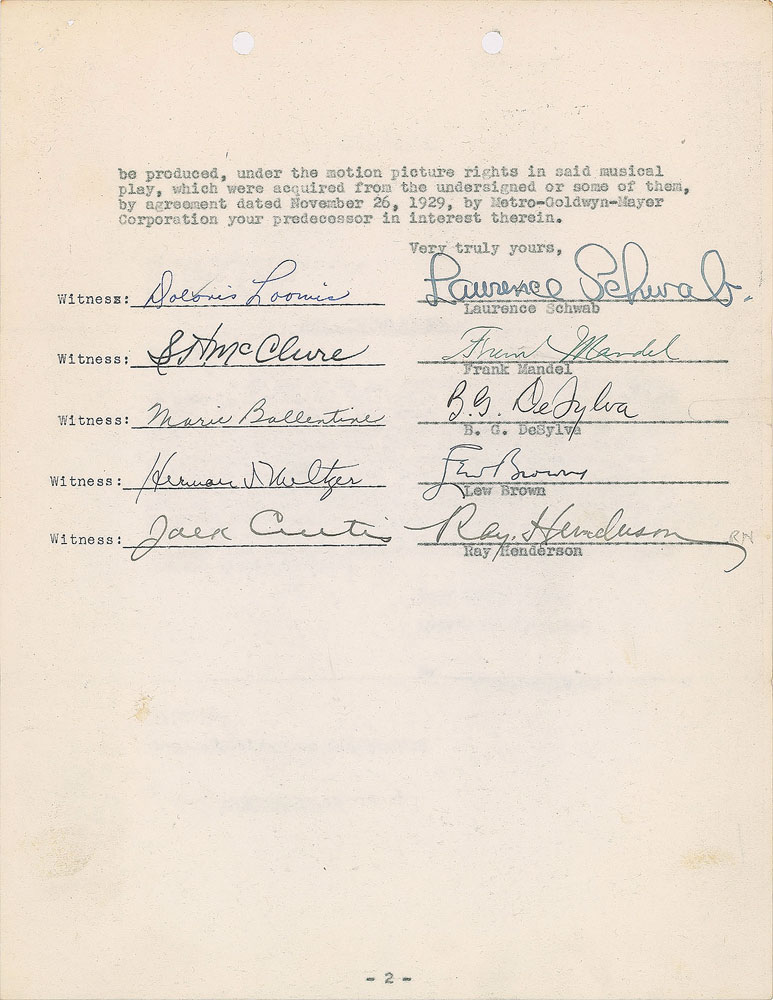 be produced, under the motion picture rights in said musical
play, which were acquired from the undersigned or some of them,
by agreement dated November 26, 1929, by Metro-Goldwyn-Mayer
Corporation your predecessor in interest therein.
Very truly yours,
Witness: Doloris Loomis Laurence Schwab.
Laurence Schwab
Witness: S H McClure Frank Mandel
Frank Mandel
Witness: Marie Ballentine B. G. DeSylva
B. G. DeSylva
Witness: Herman J. Meltzer Lew Brown
Lew Brown
Witness: Jack Curtis Ray Henderson RH
Ray Henderson
- 2 -